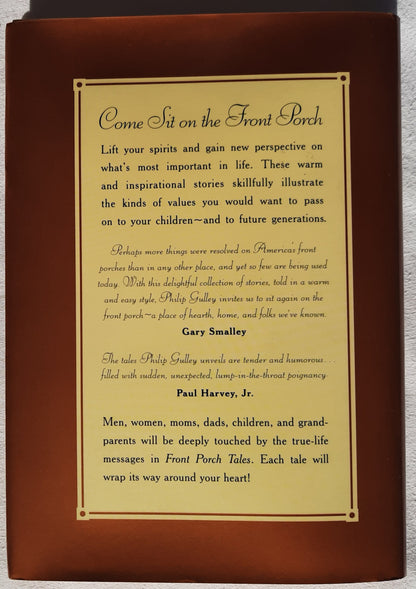 Come Sit on the Front Porch
Lift your spirits and gain new perspective on
what's most important in life. These warm
and inspirational stories skillfully illustrate
the kinds of values you would want to pass
on to your children~and to future generations.
Perhaps more things were resolved on America's front
porches than in any other place, and yet so few are being used
today. With this delightful collection of stories, told in a warm
and easy style, Philip Gulley invites us to sit again on the
front porch~a place of hearth, home, and folks we've known.
Gary Smalley
The tales Philip Gulley unveils are tender and humorous...
filled with sudden, unexpected, lump-in-the-throat poignancy.
Paul Harvey, Jr.
Men, women, moms, dads, children, and grand-
parents will be deeply touched by the true-life
messages in Front Porch Tales. Each tale will
wrap its way around your heart!